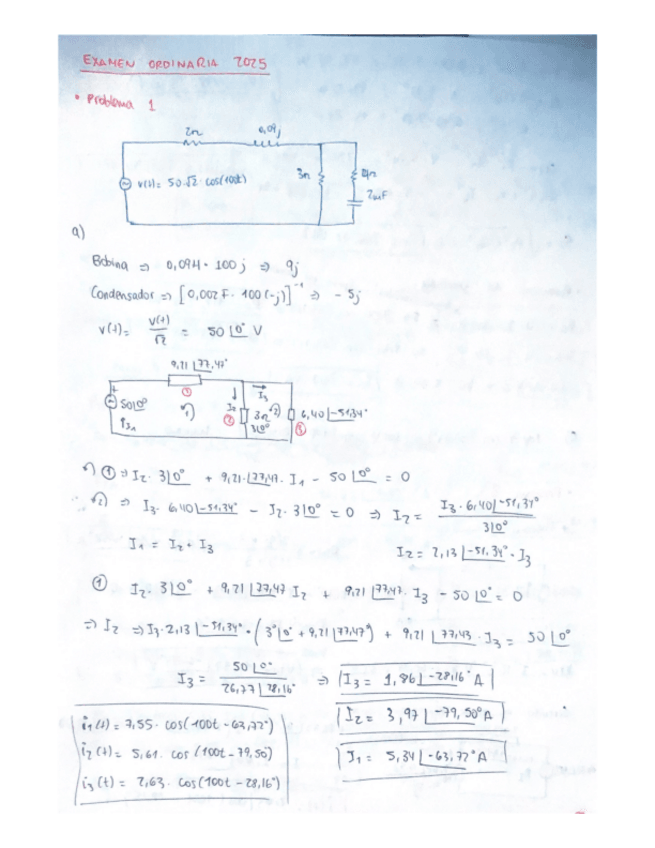 EXAMEN ORDINARIA 2025
• Problema 1
2Ω 0,09j
v(t)= 50·√2 · cos(100t) 3Ω 4Ω
2mF
a)
Bobina => 0,09H · 100j => 9j
Condensador => [0,002F · 100(-j)]⁻¹ => - 5j
v(t)= v(t)/√2 = 50∟0° V
9,21∟77,47°
①
+ 50∟0° 1) I₂ 3Ω 2) I₃ 6,40∟-51,34°
3∟0°
1) ① => I₂ · 3∟0° + 9,21·∟77,47 · I₁ - 50∟0° = 0
2) => I₃ · 6,40∟-51,34° - I₂ · 3∟0° = 0 => I₂ = I₃ · 6,40∟-51,34° / 3∟0°
I₁ = I₂ + I₃ I₂ = 2,13∟-51,34° · I₃
① I₂ · 3∟0° + 9,21∟77,47 I₂ + 9,21∟77,47 · I₃ - 50∟0° = 0
=> I₂ => I₃ · 2,13∟-51,34° · (3∟0° + 9,21∟77,47°) + 9,21∟77,43 · I₃ = 50∟0°
I₃ = 50∟0° / 26,77∟28,16° => I₃ = 1,86∟-28,16° A
i₁(t) = 7,55 · cos(100t - 63,72°) I₂ = 3,97∟-79,50° A
i₂(t) = 5,61 · cos (100t - 79,50) I₁ = 5,34∟-63,72° A
i₃(t) = 2,63 · cos(100t - 28,16°)